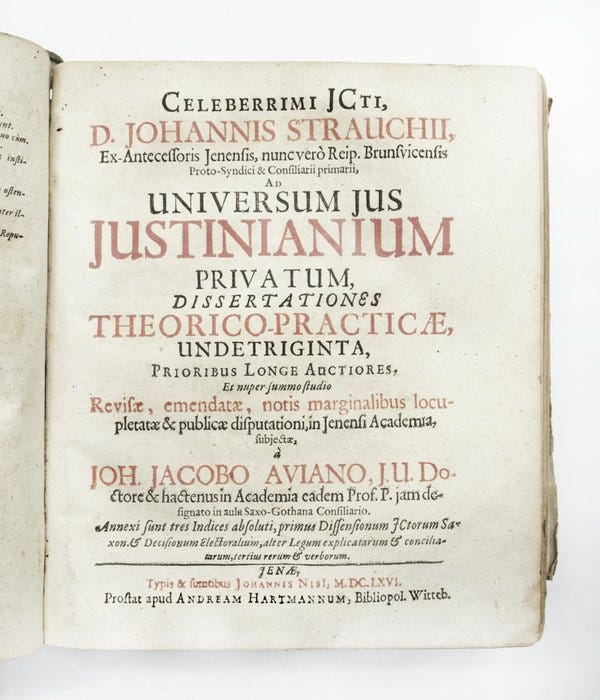 unt.
uo cùm.
insti-
osten-
ter il-
Repu-
CELEBERRIMI JCTI,
D. JOHANNIS STRAUCHII,
Ex-Antecessoris Jenensis, nunc verò Reip. Brunsvicensis
Proto-Syndici & Consiliarii primarii,
AD
UNIVERSUM JUS
JUSTINIANIUM
PRIVATUM,
DISSERTATIONES
THEORICO-PRACTICÆ,
UNDETRIGINTA,
PRIORIBUS LONGE AUCTIORES,
Et nuper summo studio
Revisæ, emendatæ, notis marginalibus locu-
pletatæ & publicæ disputationi, in Jenensi Academia,
subjectæ,
à
JOH. JACOBO AVIANO, J.U. Do-
ctore & hactenus in Academia eadem Prof. P. jam de-
signato in aula Saxo-Gothana Consiliario.
Annexi sunt tres Indices absoluti, primus Dissensionum JCtorum Sa-
xon. & Decisionum Electoralium, alter Legum explicatarum & concilia-
tarum, tertius rerum & verborum.
JENÆ,
Typis & sumtibus JOHANNIS NISI, M.DC.LXVI.
Prostat apud ANDREAM HARTMANNUM, Bibliopol. Witteb.